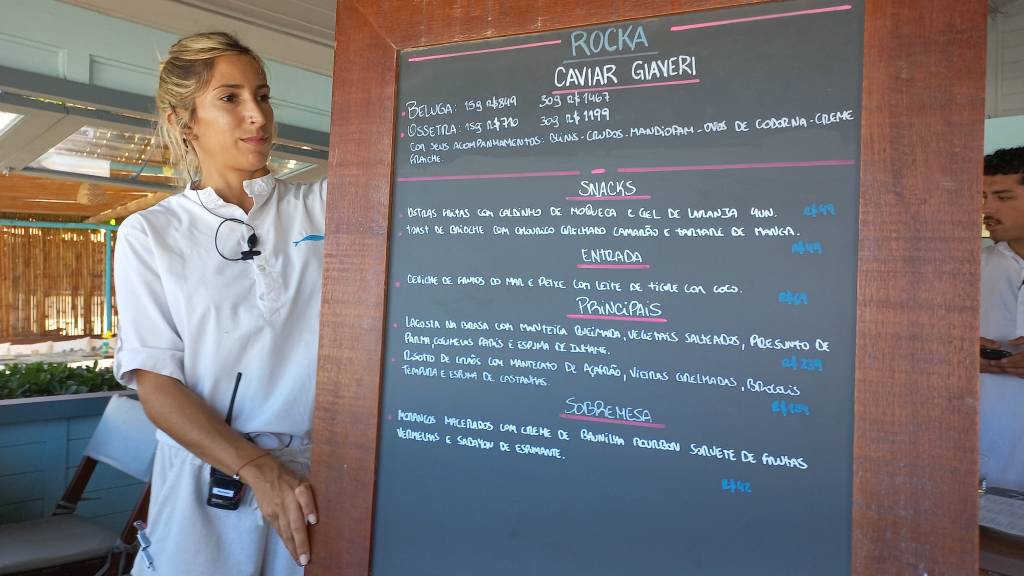 ROCKA
CAVIAR GIAVERI
• BELUGA: 15g R$849 30g R$1467
• OSSETRA: 15g R$710 30g R$1199
COM SEUS ACOMPANHAMENTOS: BLINIS - CRUDOS - MANDIOPAM - OVOS DE CODORNA - CREME
FRAICHE.
SNACKS
• OSTRAS FRITAS COM CALDINHO DE MOQUECA E GEL DE LARANJA 4UN. R$49
• TOAST DE BRIOCHE COM CHOURIÇO GRELHADO CAMARÃO E TARTARE DE MANGA.
R$49
ENTRADA
• CEVICHE DE FRUTOS DO MAR E PEIXE COM LEITE DE TIGRE COM COCO. R$69
PRINCIPAIS
• LAGOSTA NA BRASA COM MANTEIGA QUEIMADA, VEGETAIS SALTEADOS, PRESUNTO DE
PARMA, COGUMELOS PARIS E ESPUMA DE INHAME. R$239
• RISOTTO DE GRÃOS COM MANTECATO DE AÇAFRÃO, VIEIRAS GRELHADAS, BROCOLIS
TEMPURA E ESPUMA DE CASTANHAS.
SOBREMESA
• MORANGOS MACERADOS COM CREME DE BAUNILHA BOURBON SORVETE DE FRUTAS
VERMELHAS E SABAYON DE ESPUMANTE.
R$42